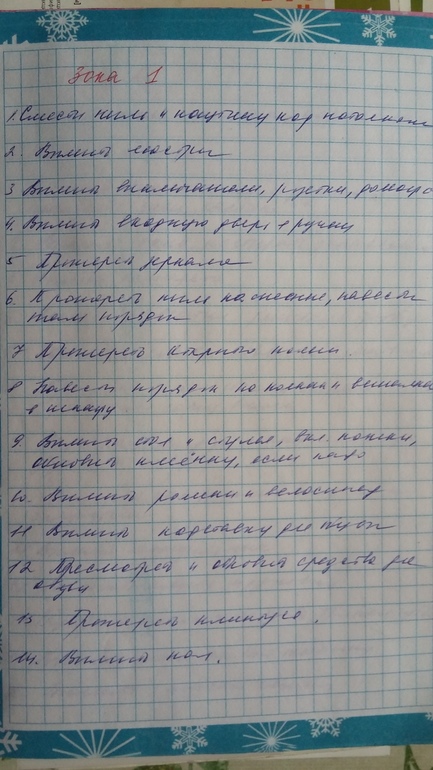 Зона 1
1. Смести пыль и паутину под потолком
2. Вымыть люстры
3 Вымыть выключатели, розетки, домофо
4. Вымыть входную дверь и ручки
5 Протереть зеркала
6. Протереть пыль на, навести
там порядок
7 Протереть открытые полки.
8 Навести порядок на полках и вешалках
в шкафу
9. Вымыть стол и стулья, вкл. ножки,
обновить клеёнку, если надо
10. Вымыть ролики и велосипед
11 Вымыть подставку для
12 Пресмотреть и обновить средства для
обуви
13 Протереть плинтуса.
14. Вымыть пол.